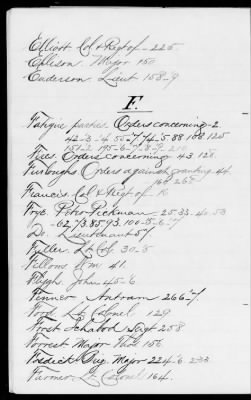 Elliott Col & Regt of - 225
Ellison Major 150
Enderson Lieut 158-9
F.
Fatigue parties Orders concerning - 2
42-3-4 55-7, 74-5 88 108 125
151-2 195-6-7-8-9 210
Fires Orders concerning 43 128
Furloughs Orders against granting 44
160 265
Francis Col & Regt of 16
Foye Peter Pickman 25-33-40 53
62, 73, 85, 93, 100-5-6-7
Do. Lieutenant 57
Fuller Lt Col 30-5
Fellows Wm 41.
Flagg John 45-6
Fenner Antram 266-7
Foot Lt Colonel 129
Forest Ichabod Sergt 258
Forrest Major Thos 156
Fosdick Brig. Major 224-6 233
Farmer Lt Colonel 164.